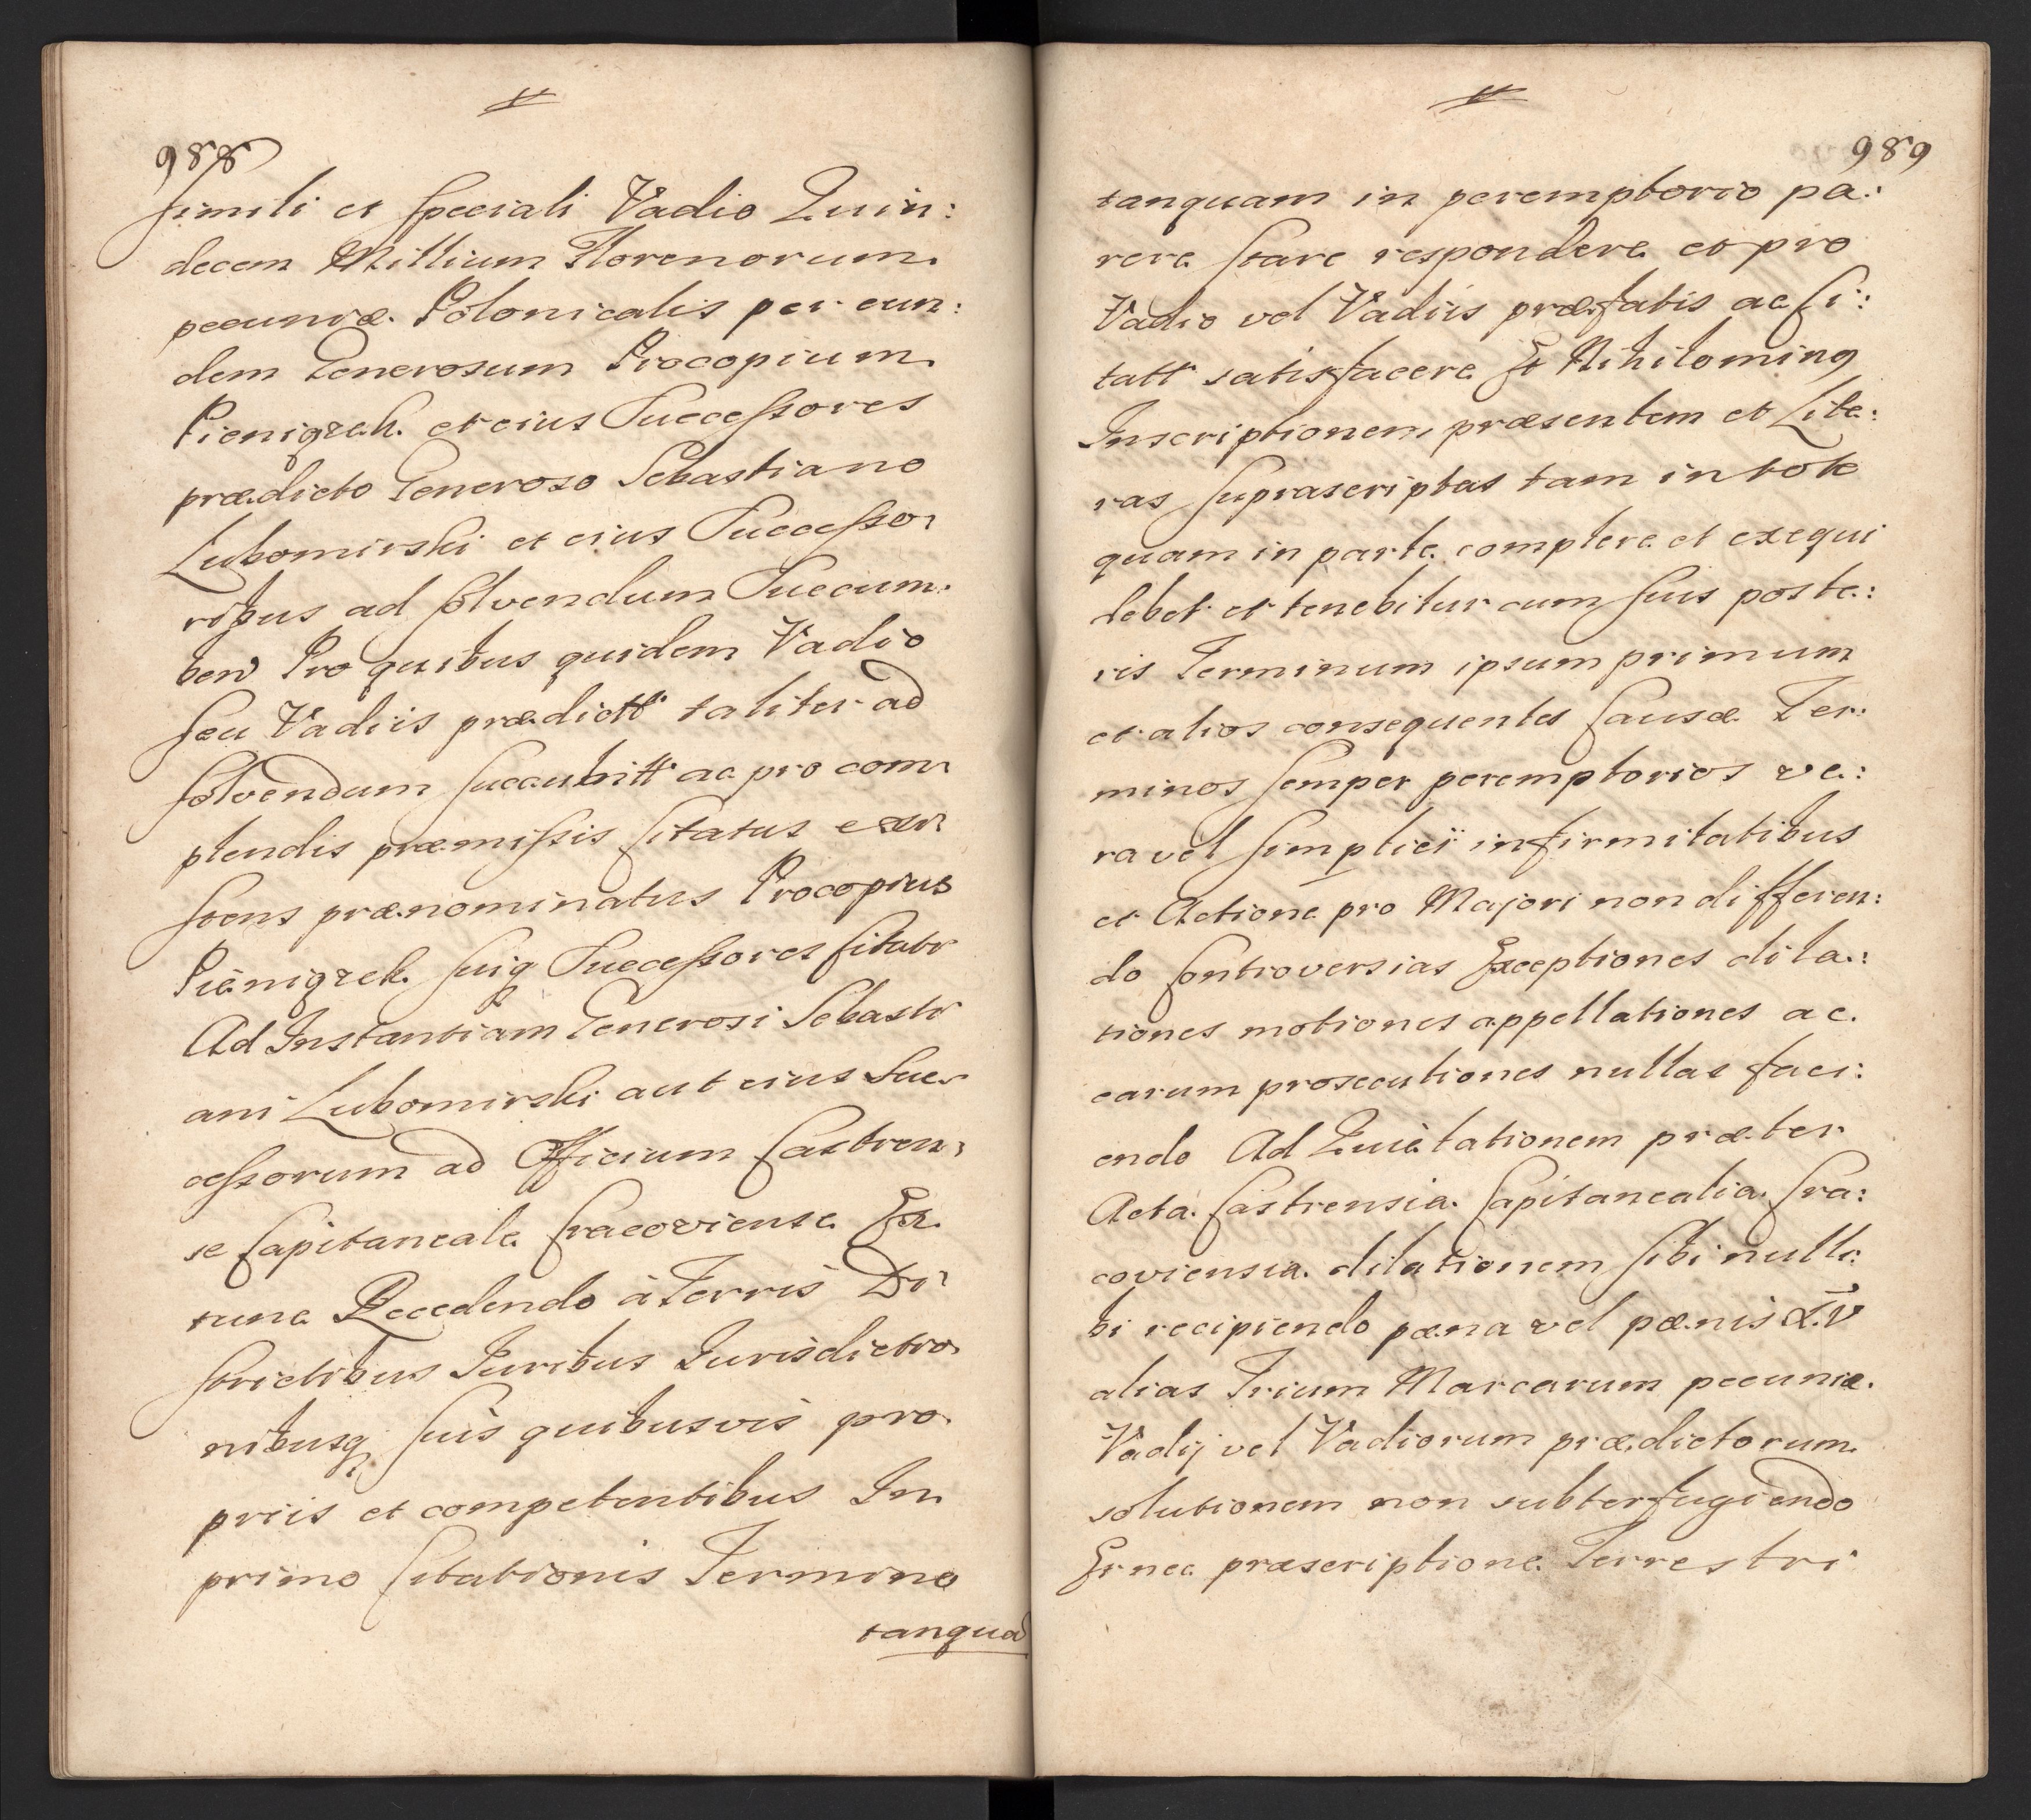 988
simili et speciali Vadio Quin:
decem Millium Florenorum
pecuniæ Polonicalis per eun:
dem Generosum Procopium
Pieniązek et eius Successores
prædicto Generoso Sebastiano
Lubomirski et eius Successo-
ribus ad solvendum Succum-
ben Pro quibus quidem Vadio
seu Vadiis prædictt taliter ad
solvendum succubitt ac pro com-
plendis præmissis Citatus exi-
stens prænominatus Procopius
Pieniązek suiq Successores Citatt
Ad Instantiam Generosi Sebasti-
ani Lubomirski aut eius Suc-
cessorum ad Officium Castren-
se Capitaneale Cracoviense Ex
tunc Recedendo à Terris Di-
strictibus Juribus Jurisdictio-
nibusq suis quibusvis pro-
priis et competentibus In
primo Citationis Termino
tanqua
989
tanquam in peremptorio pa:
rere stare respondere et pro
Vadio vel Vadiis præfatis ac Ci:
tatt satisfacere Et Nihilominq
Inscriptionem præsentem et Lite:
ras suprascriptas tam in toto
quam in parte complere et exequi
debet et tenebitur cum suis poste:
ris Terminum ipsum primum
et alios consequentes Causæ Ter:
minos semper peremptorios ve:
ra vel simplici infirmitatibus
et Actione pro Majori non differen:
do Controversias Exceptiones dila:
tiones motiones appellationes ac
earum prosecutiones nullas faci:
endo Ad Quietationem præter
Acta Castrensia Capitanealia Cra:
coviensia dilationem sibi nulli:
bi recipiendo pæna vel pænis XV
alias Trium Marcarum pecuniæ
Vadij vel Vadiorum prædictorum
solutionem non subterfugiendo
Et nec præscriptione Terrestri